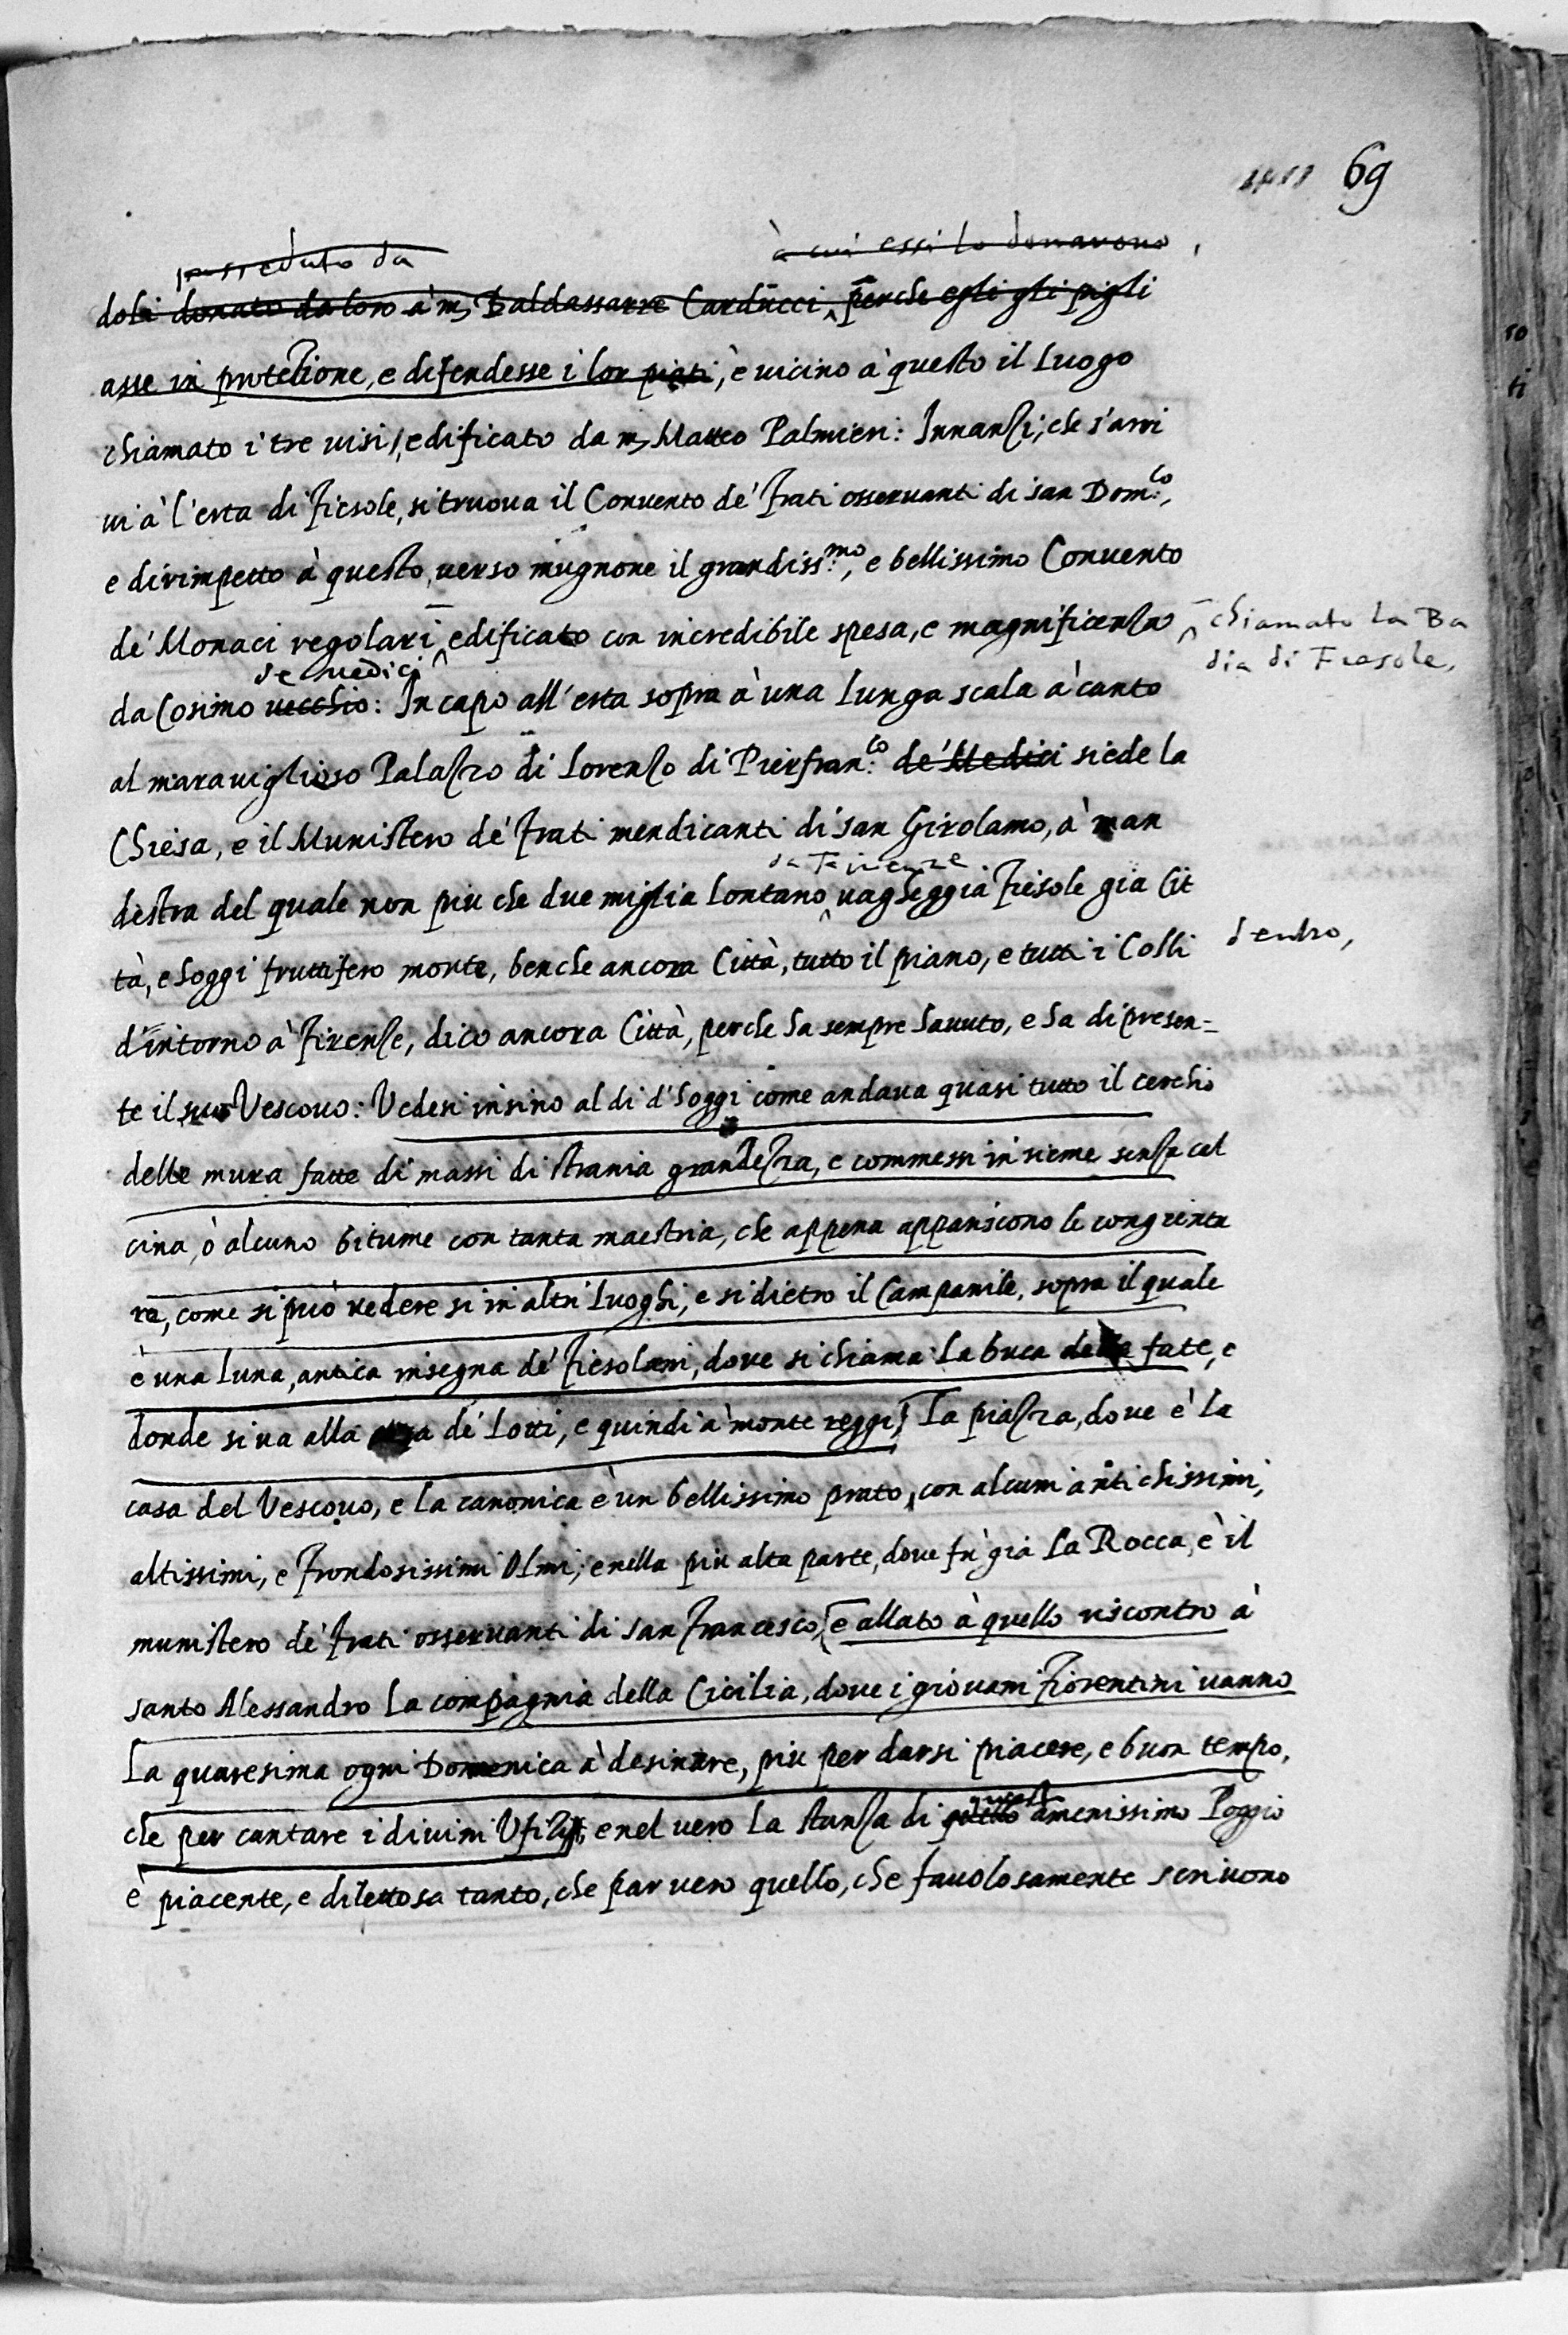 69
posseduto da à cui essi lo donarono,
doli donato da loro à m, Baldassarre Carducci, perche egli gli pigli
asse in protezione, e difendesse i lor piati, è uicino à questo il luogo
chiamato i tre uisi, edificato da m, Matteo Palmieri: Innanzi, che s'arri
ui à l'erta di Fiesole, si truoua il Conuento de' frati osseruanti di san Dom.co,
e dirimpetto à questo uerso mugnone il grandiss.mo, e bellissimo Conuento
de' Monaci regolari edificato con incredibile spesa, e magnificenza
chiamato la Ba
dia di Fiesole,
de medici
da Cosimo uecchio: In capo all'erta sopra à una lunga scala à canto
al marauiglioso Palazzo di Lorenzo di Pierfran.co de' Medici siede la
Chiesa, e il Munistero de' frati mendicanti di san Girolamo, à man
da Firenze
destra del quale non piu che due miglia lontano uagheggia Fiesole gia Cit
tà, e hoggi fruttifero monte, benche ancora Città, tutto il piano, e tutti i Colli
dentro,
d'intorno à Firenze, dico ancora Città, perche ha sempre hauuto, e ha di presen=
te il suo Vescouo: Vedesi insino al di d'hoggi come andaua quasi tutto il cerchio
delle mura fatte di massi di strania grandezza, e commessi insieme senza cal
cina, ò alcuno bitume con tanta maestria, che appena appariscono le congiuntu
re, come si può uedere si in altri luoghi, e si dietro il Campanile, sopra il quale
è una luna, antica insegna de' Fiesolani, doue si chiama la buca delle fate, e
donde si ua alla de' Lotti, e quindi à monte reggi, La piazza, doue è la
casa del Vescouo, e la canonica è un bellissimo prato, con alcuni antichissimi,
altissimi, e frondosissimi Olmi; e nella piu alta parte, doue fu già la Rocca, è il
munistero de' frati osseruanti di san Francesco, e allato à quello riscontro à
santo Alessandro la compagnia della Cicilia, doue i giouani Fiorentini uanno
la quaresima ogni Domenica à desinare, piu per darsi piacere, e buon tempo,
che per cantare i diuini Vfizij, e nel uero la stanza di quello amenissimo Poggio
è piacente, e dilettosa tanto, che par uero quello, che fauolosamente scriuono